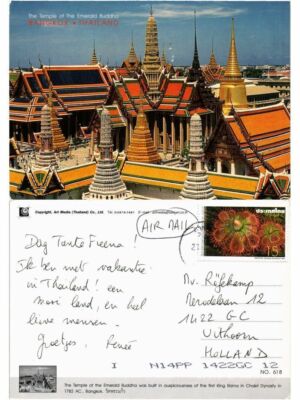 The Temple of The Emerald Buddha
BANGKOK • THAILAND
Copyright, Art Media (Thailand) Co., Ltd.
AIR MAIL
ประเทศไทย
15
Dag Tante Freena!
Ik ben met vakantie
in Thailand! een
mooi land, en heel
lieve mensen.
Groetjes, Renée
Mv. Röfekamp
Merodeban 12
1422 GC
Uithoorn
HOLLAND
I N14PP 1422GC 12
NO. 618
The Temple of The Emerald Buddha was built in auspiciousness of the first King Rama in Chakri Dynasty in
1782 AC., Bangkok.